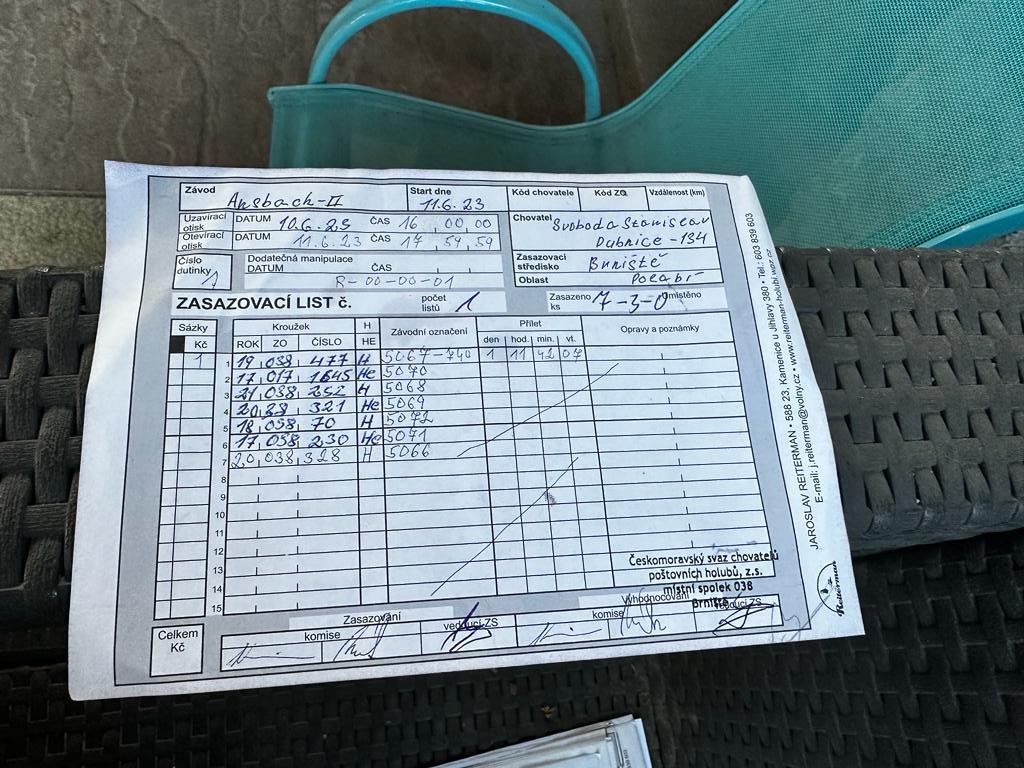 Závod Ansbach-II Start dne 11.6.23 Kód chovatele Kód ZO Vzdálenost (km)
Uzavírací otisk DATUM 10.6.23 ČAS 16 00 00 Chovatel Svoboda Stanislav
Otevírací otisk DATUM 11.6.23 ČAS 17 59 59 Dubnice -134
Číslo dutinky 1 Dodatečná manipulace Zasazovací středisko Brniště
DATUM ČAS Oblast
R-00-00-01
ZASAZOVACÍ LIST č. počet listů 1 Zasazeno ks 7-3-0 Umístěno
Sázky Kroužek H Závodní označení Přílet Opravy a poznámky
Kč ROK ZO ČÍSLO HE den hod. min. vt.
1 1 19 038 477 H 5067-740 1 11 42 07
2 17 017 1645 He 5070
3 21 038 252 H 5068
4 20 28 321 He 5069
5 18 038 70 H 5072
6 17 038 230 He 5071
7 20 038 328 H 5066
8
9
10
11
12
13
14
15
Českomoravský svaz chovatelů
poštovních holubů, z.s.
místní spolek 038
Brniště
Celkem Kč Zasazování Vyhodnocování
komise vedoucí ZS komise vedoucí ZS
JAROSLAV REITERMAN • 588 23, Kamenice u Jihlavy 380 • Tel.: 603 839 603
E-mail: j.reiterman@volny.cz • www.reiterman-holubi.wbs.cz
Reiterman